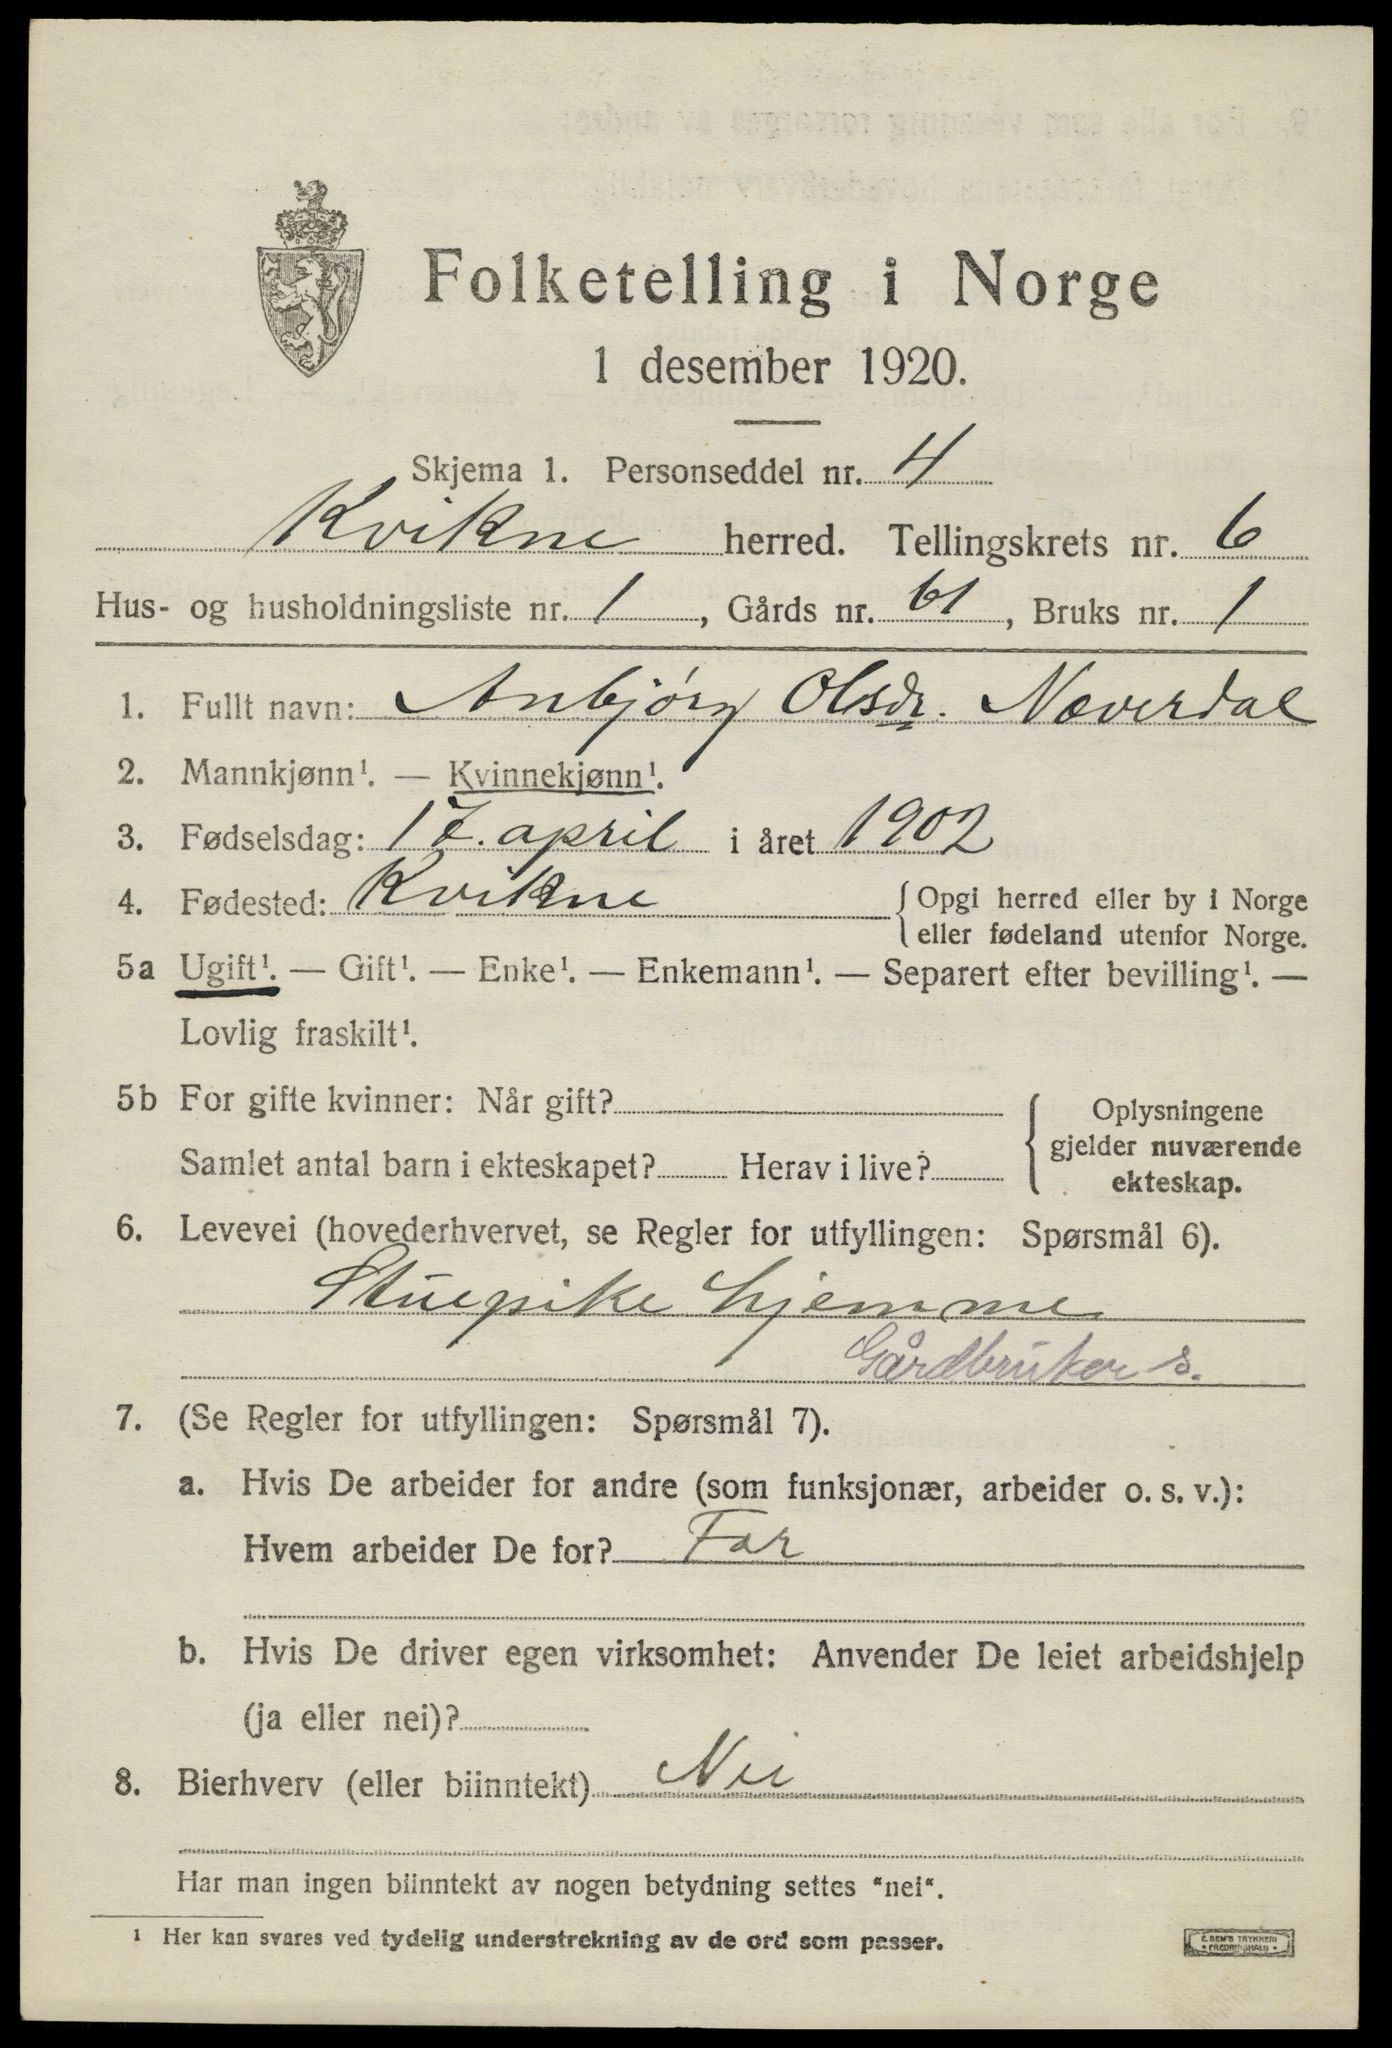 Folketelling i Norge
1 desember 1920.
Skjema 1. Personseddel nr. 4
Kvikne herred. Tellingskrets nr. 6
Hus- og husholdningsliste nr. 1, Gårds nr. 61, Bruks nr. 1
1. Fullt navn: Anbjørg Olsdr. Næverdal
2. Mannkjønn¹. — Kvinnekjønn¹.
3. Fødselsdag: 17. april i året 1902
4. Fødested: Kvikne { Opgi herred eller by i Norge
eller fødeland utenfor Norge.
5a Ugift¹. — Gift¹. — Enke¹. — Enkemann¹. — Separert efter bevilling¹. —
Lovlig fraskilt¹.
5b For gifte kvinner: Når gift? { Oplysningene
gjelder nuværende
ekteskap.
Samlet antal barn i ekteskapet? Herav i live?
6. Levevei (hovederhvervet, se Regler for utfyllingen: Spørsmål 6).
Stuepike hjemme
Gårdbruker s.
7. (Se Regler for utfyllingen: Spørsmål 7).
a. Hvis De arbeider for andre (som funksjonær, arbeider o. s. v.):
Hvem arbeider De for? Far
b. Hvis De driver egen virksomhet: Anvender De leiet arbeidshjelp
(ja eller nei)?
8. Bierhverv (eller biinntekt) Nei
Har man ingen biinntekt av nogen betydning settes "nei".
¹ Her kan svares ved tydelig understrekning av de ord som passer.
E. SEM'S TRYKKERI
* FREDRIKSHALD *